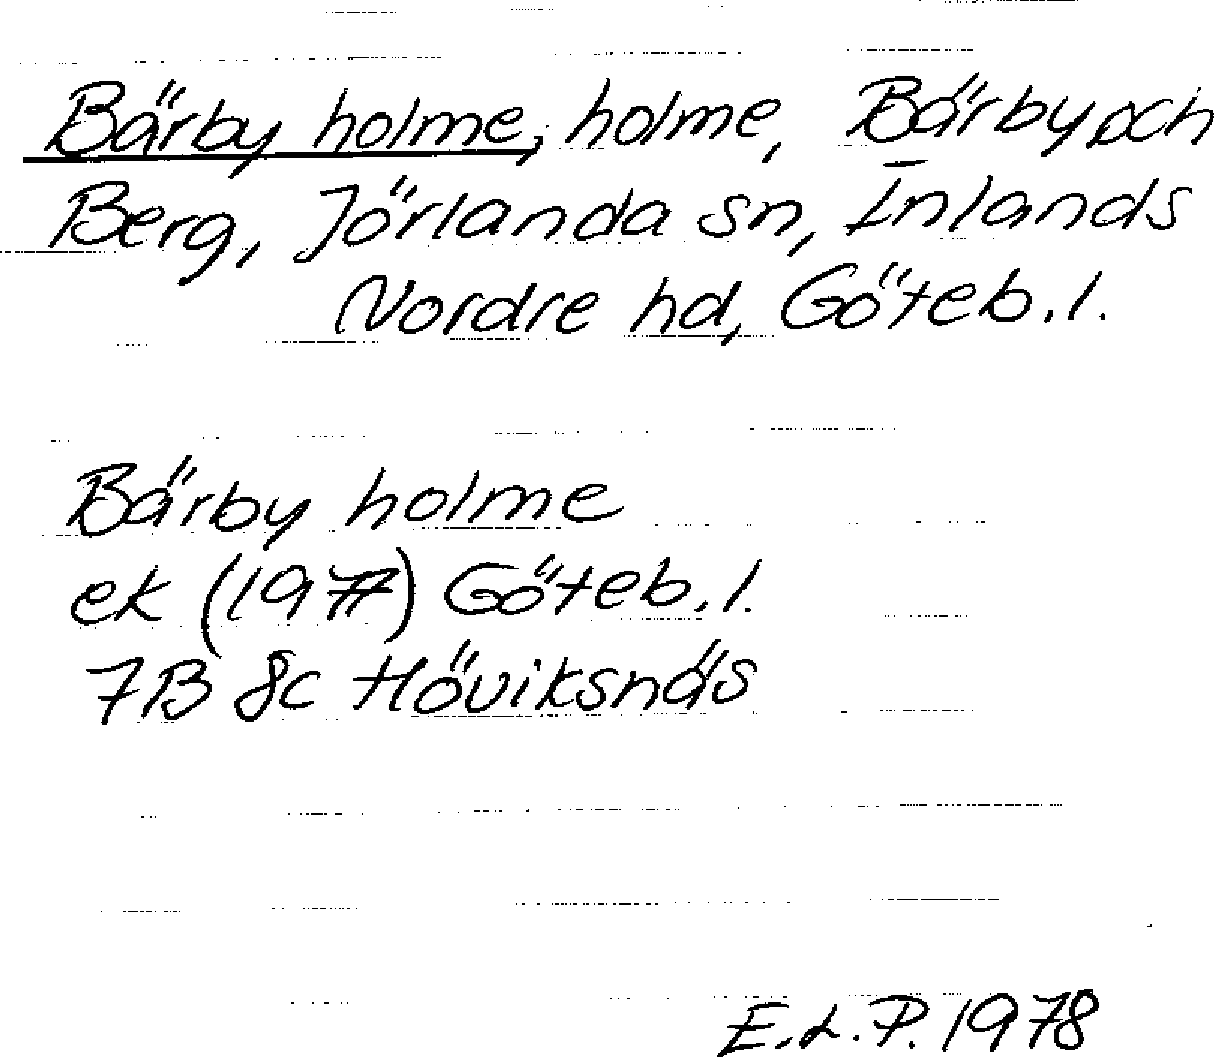 Bärby holme, holme, Bärby och
Berg, Jörlanda sn, Inlands
Nordre hd, Göteb. l.
Bärby holme
ek (1977) Göteb. l.
7B 8c Höviksnäs
E.L.P. 1978